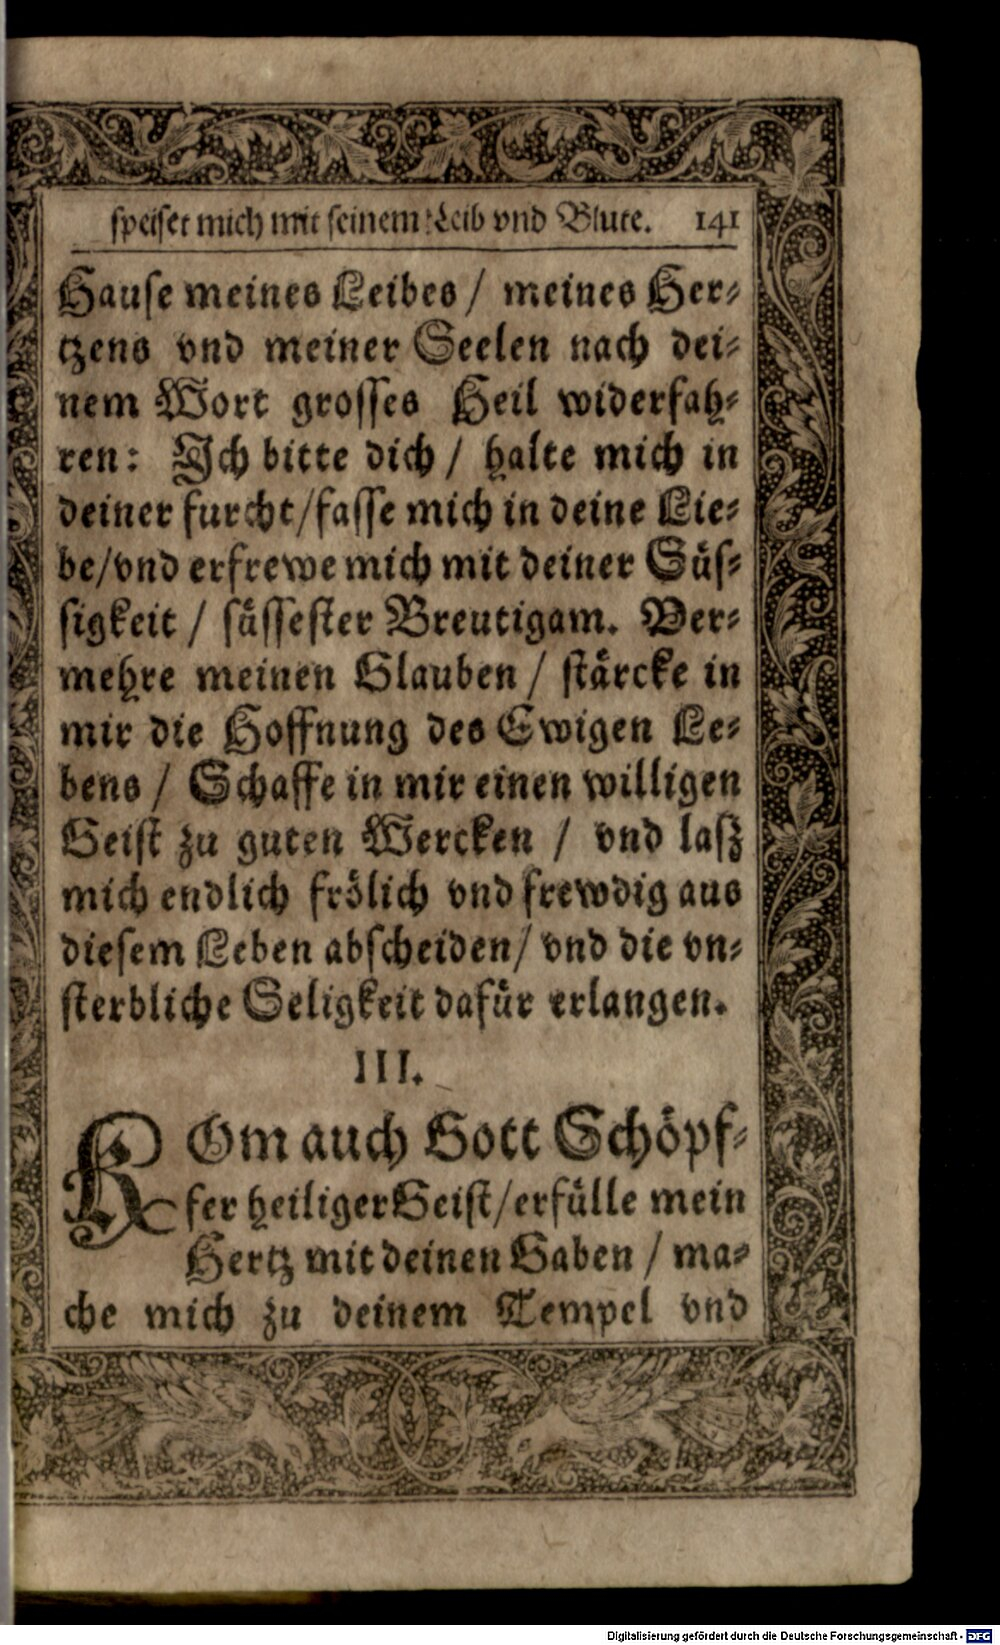 speiset mich mit seinem Leib vnd Blute. 141
Hause meines Leibes / meines Her⸗
tzens vnd meiner Seelen nach dei⸗
nem Wort grosses Heil widerfah⸗
ren: Ich bitte dich / halte mich in
deiner furcht/fasse mich in deine Lie⸗
be/vnd erfrewe mich mit deiner Süs⸗
sigkeit / süssester Breutigam. Ver⸗
mehre meinen Glauben / stärcke in
mir die Hoffnung des Ewigen Le⸗
bens / Schaffe in mir einen willigen
Geist zu guten Wercken / vnd lasz
mich endlich frölich vnd frewdig aus
diesem Leben abscheiden/ vnd die vn⸗
sterbliche Seligkeit dafür erlangen.
III.
KOm auch Gott Schöpf⸗
fer heiliger Geist/erfülle mein
Hertz mit deinen Gaben / ma⸗
che mich zu deinem Tempel vnd
Digitalisierung gefördert durch die Deutsche Forschungsgemeinschaft - DFG